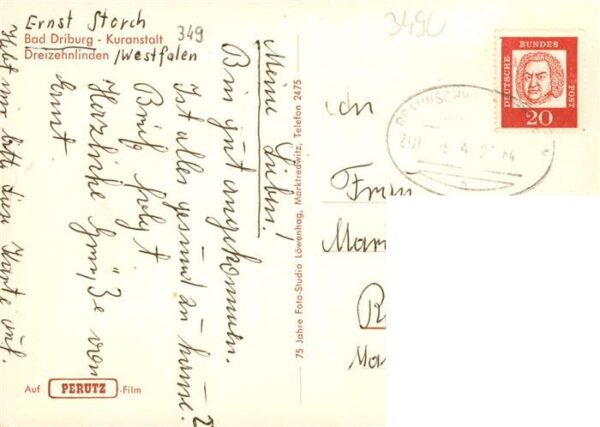 Ernst Storch
Bad Driburg - Kuranstalt
Dreizehnlinden /Westfalen
349
349
Meine Lieben!
Bin gut angekommen.
Ist alles gesund zu hause?
Brief folgt
Herzliche Grüße von
Ernst
Hebt mir bitte diese Karte auf.
Auf PERUTZ-Film
75 Jahre Foto-Studio Löwenhag, Marktredwitz, Telefon 2475
DEUTSCHE BUNDESPOST
20